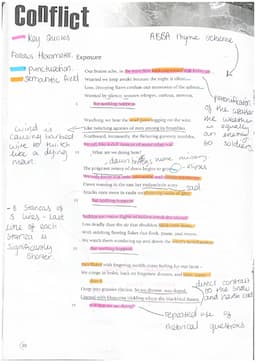 Conflict
Key Quotes
ABBA rhyme scheme
punctuation
semantic field
Exposure
Our brains ache, in the merciless iced east winds that knive us...
Wearied we keep awake because the night is silent...
Low, drooping flares confuse our memories of the salient...
Worried by silence, sentries whisper, curious, nervous,
But nothing happens.
personification of the weather
the weather
is equally
an enemy
to soldiers
Watching, we hear the mad gusts tugging on the wire,
Like twitching agonies of men among its brambles.
Northward, incessantly, the flickering gunnery rumbles,
What are we doing here?
wind is
causing barbed
wire to twitch
like a dying
man.
dawn brings new misery
The poignant misery of dawn begins to grow...
Dawn massing in the east her melancholy army
sad
Attacks once more in ranks on shivering ranks of grey,
But nothing happens.
8 Stanzas of
5 lines - last
line of each
Stanza is
Significantly
Shorter.
Sudden successive flights of bullets streak the silence.
Less deadly than the air that shudders black with snow,
With sidelong flowing flakes that flock, pause, and renew,
We watch them wandering up and down the wind's nonchalance,
But nothing happens.
Pale flakes with fingering stealth come feeling for our faces –
We cringe in holes, back on forgotten dreams, and stare, snow-
dazed,
Deep into grassier ditches. So we drowse, sun-dozed,
Littered with blossoms trickling where the blackbird fusses.
direct contrast
to the snow
and harsh cold
repeated use of
rhetorical questions